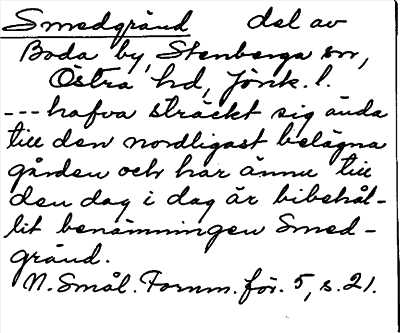 Smedgränd del av
Boda by, Stenberga sn,
Östra hd, Jönk. l.
--- hafva sträckt sig ända
till den nordligast belägna
gården och har ännu till
den dag i dag är bibehål-
lit benämningen Smed-
gränd.
N. Smål. Fornm. för. 5, s. 21.